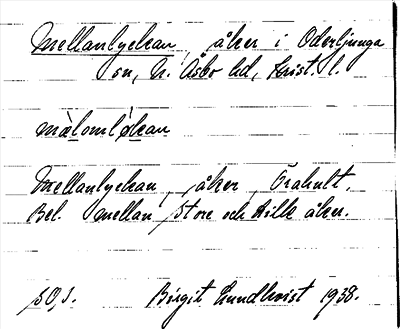 Mellanlyckan, åker i Oderljunga
sn, N. Åsbo hd, Krist. l.
mèlomlỳkan
Mellanlyckan, åker, Örahult.
Bel. mellan Store och Lille åker.
SO,1.
Birgit Lundkvist 1938.